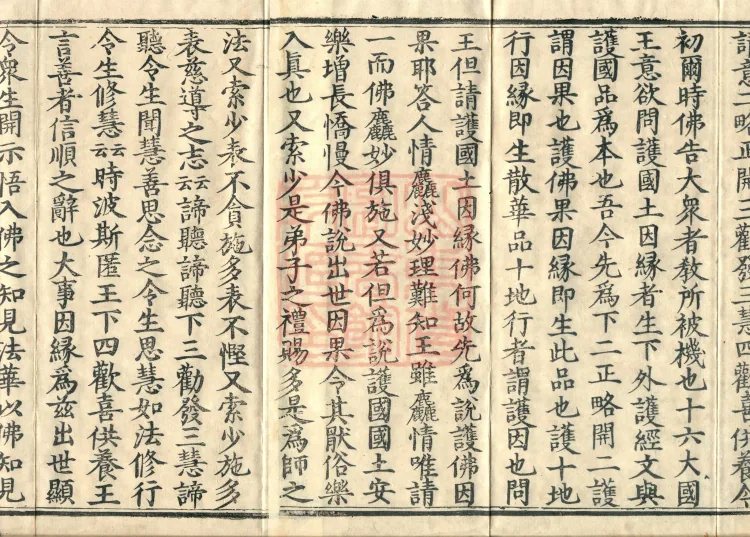 請意二略正開三勸發三慧四勸喜供養今
初爾時佛告大衆者敎所被機也十六大國
王意欲問護國土因縁者生下外護經文與
護國品爲本也吾今先爲下二正略開二護
謂因果也護佛果因縁即生此品也護十地
行因縁即生散華品十地行者謂護因也問
王但請護國土因縁佛何故先爲説護佛因
果耶答人情麤淺妙理難知王雖麤情唯請
一而佛麤妙俱施又若但爲説護國國土安
樂增長憍慢今佛説出世因果令其厭俗樂
入眞也又索少是弟子之禮賜多是爲師之
法又索少表不貪施多表不慳又索少施多
表慈導之志云云諦聽諦聽下三勸發三慧諦
聽令生聞慧善思念之令生思慧如法修行
令生修慧云云時波斯匿王下四歡喜供養王
言善者信順之辭也大事因縁爲兹出世顯
令衆生開示悟入佛之知見法華以佛知見